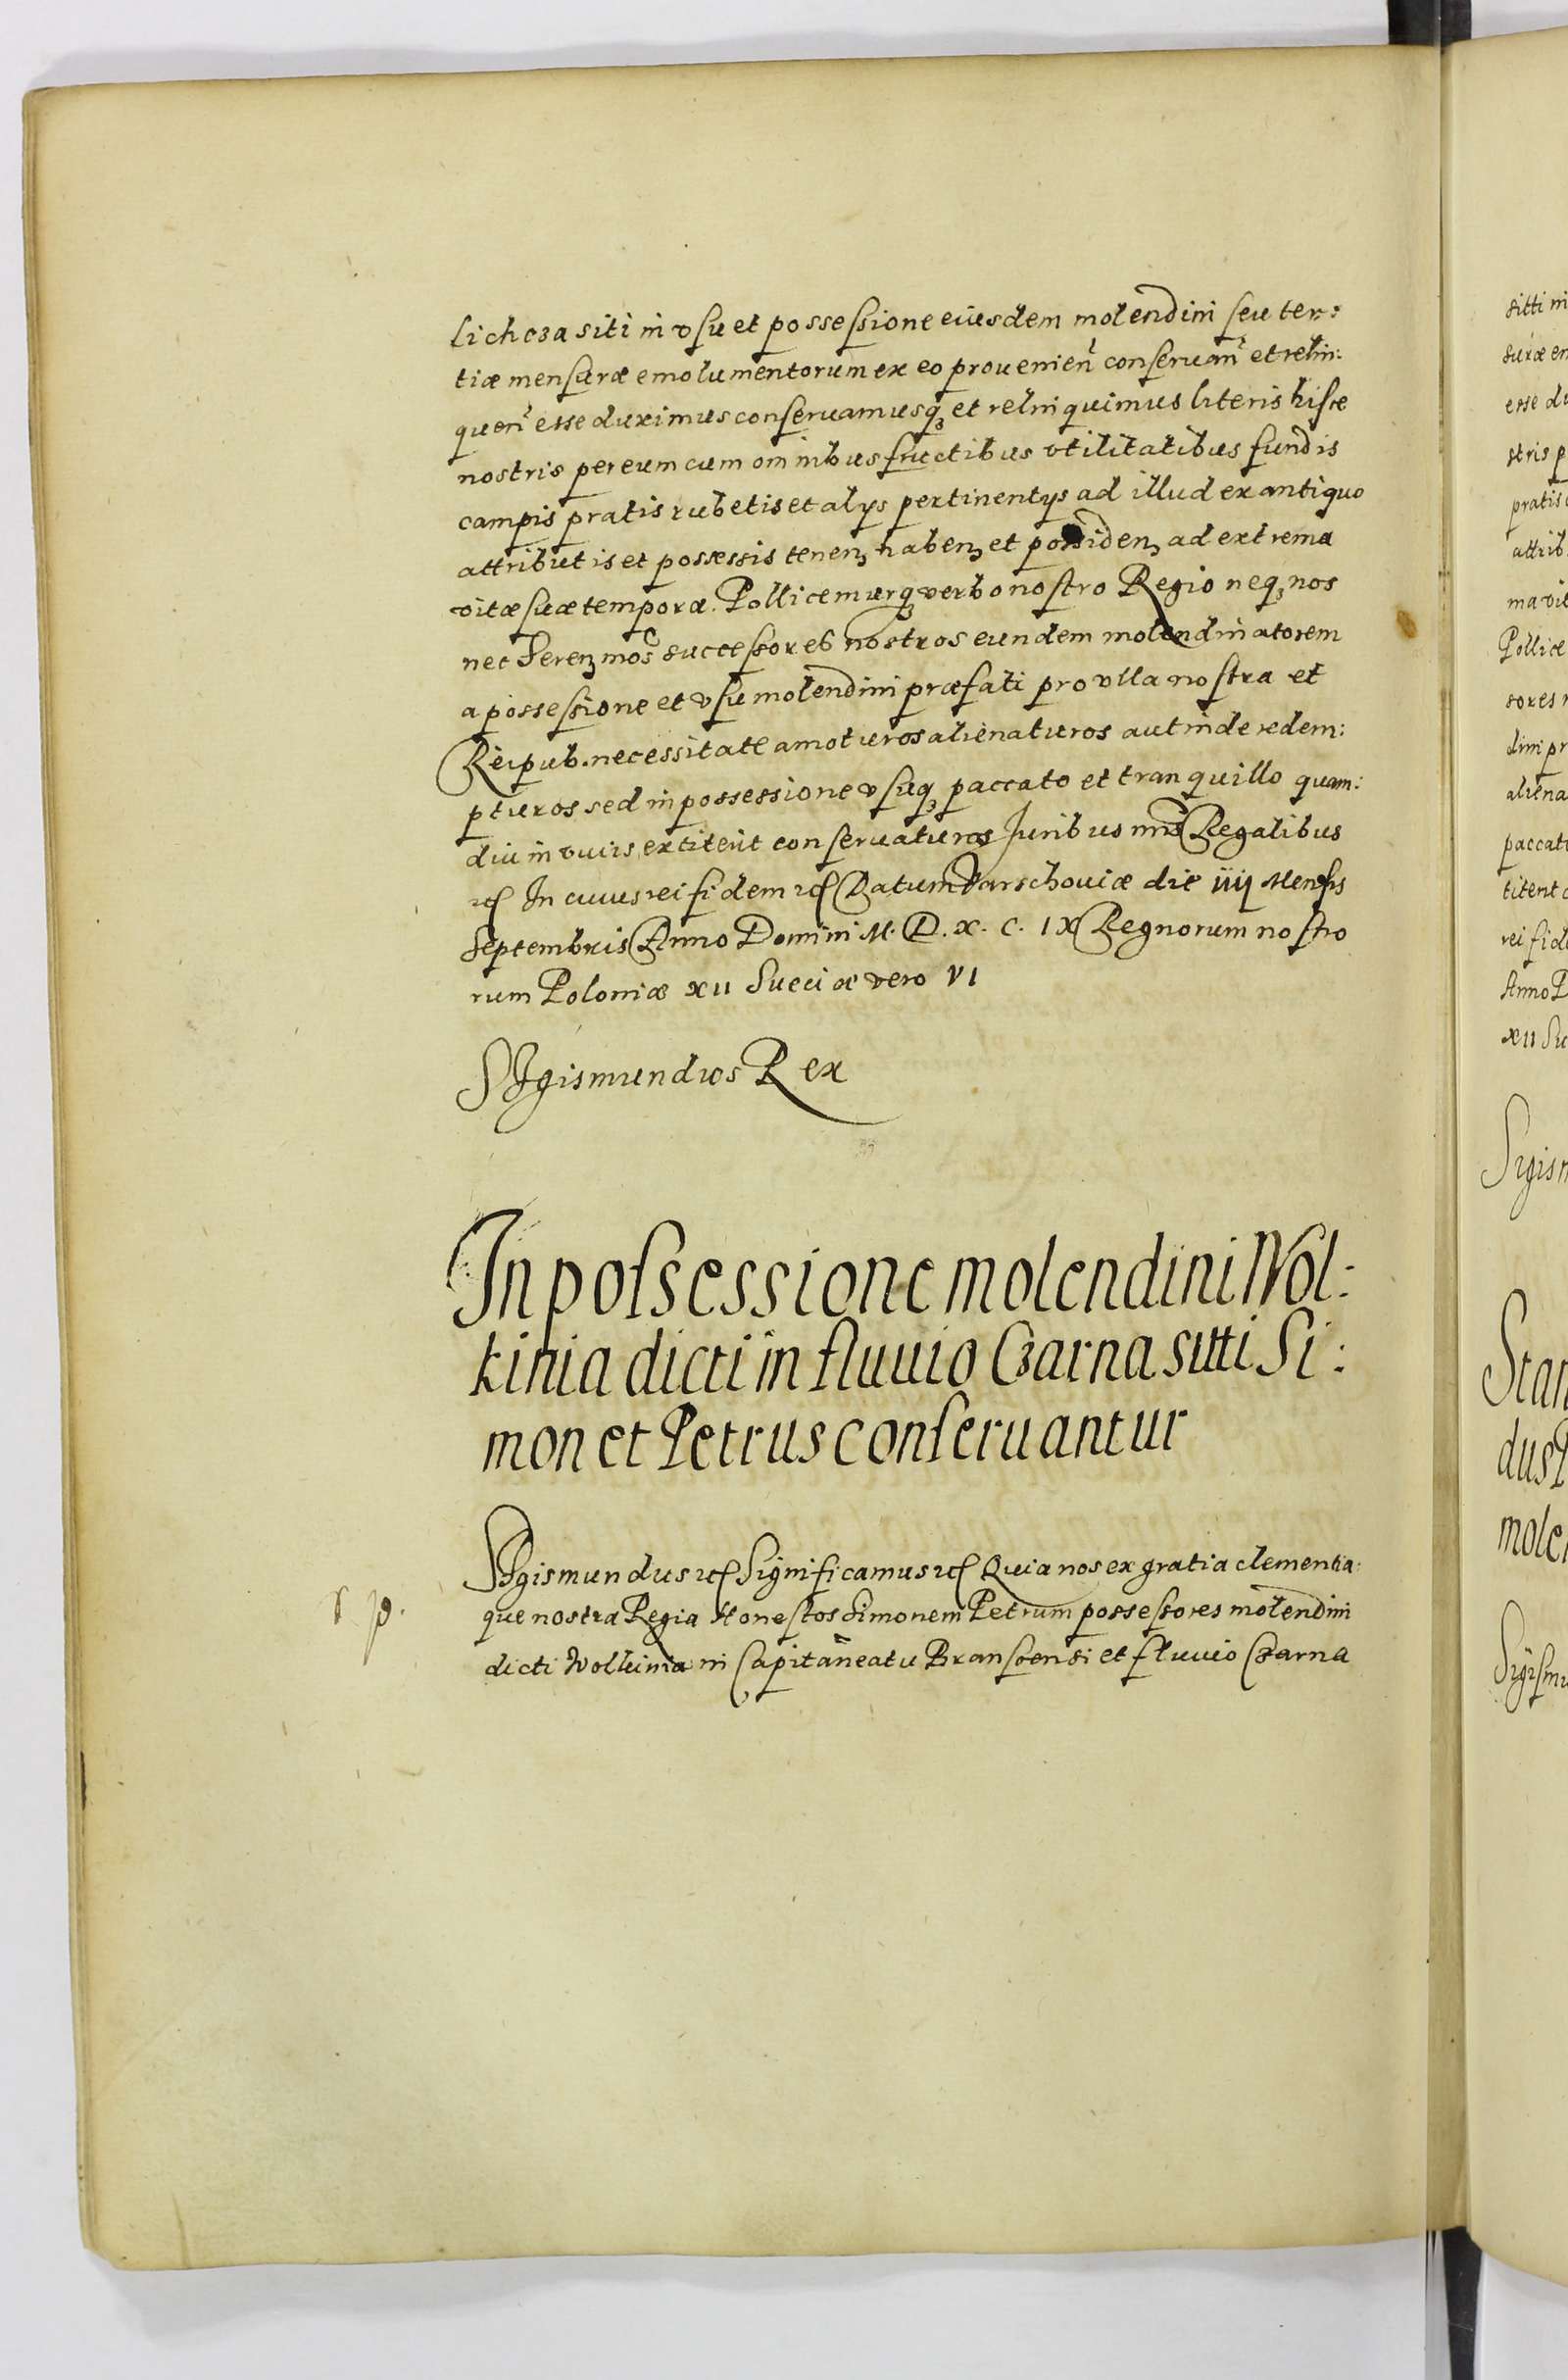 lichoza siti in vsu et possessione eiusdem molendini seu ter:
tiæ mensuræ emolumentorum ex eo prouenien̄ conseruan̄ et relin:
quen̄ esse duximus conseruamusqꝫ et relinquimus literis hisce
nostris per eum cum omnibus fructibus vtilitatibus fundis
campis pratis rubetis et alÿs pertinentÿs ad illud ex antiquo
attributis et possessis tenenꝫ habenꝫ et possidenꝫ ad extrema
vitæ suæ tempora. Pollicemurqꝫ verbo nostro Regio neqꝫ nos
nec Serenꝫmos successores nostros eundem molendinatorem
a possessione et vsu molendini præfati pro vlla nostra et
Reipub. necessitate amoturos alienaturos aut inde redem:
pturos sed in possessione vsuqꝫ paccato et tranquillo quam:
diu in viuis extiterit conseruaturos Juribus nrīs Regalibus
etc In cuius rei fidem etc Datum Varschouiæ die iiij Mensis
Septembris Anno Domini M. D. X. C. IX Regnorum nostro
rum Poloniæ XII Sueciæ vero VI
Sigismundus Rex
In possessione molendini Wol:
kinia dicti in fluuio Czarna sitti Si:
mon et Petrus conseruantur
Sigismundus etc Significamus etc Quia nos ex gratia clementia
que nostra Regia Honestos Simonem Petrum possessores molendini
dicti Wolkinia in Capitaneatu Branscensi et fluuio Czarna
sitti
esse
Pollice
rei fid
Anno
XII